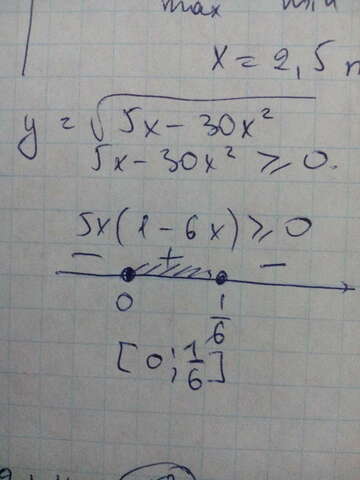 max min
x = 2,5
y = √5x - 30x²
5x - 30x² ⩾ 0.
5x(1 - 6x) ⩾ 0
− + −
0 1/6
[0; 1/6]